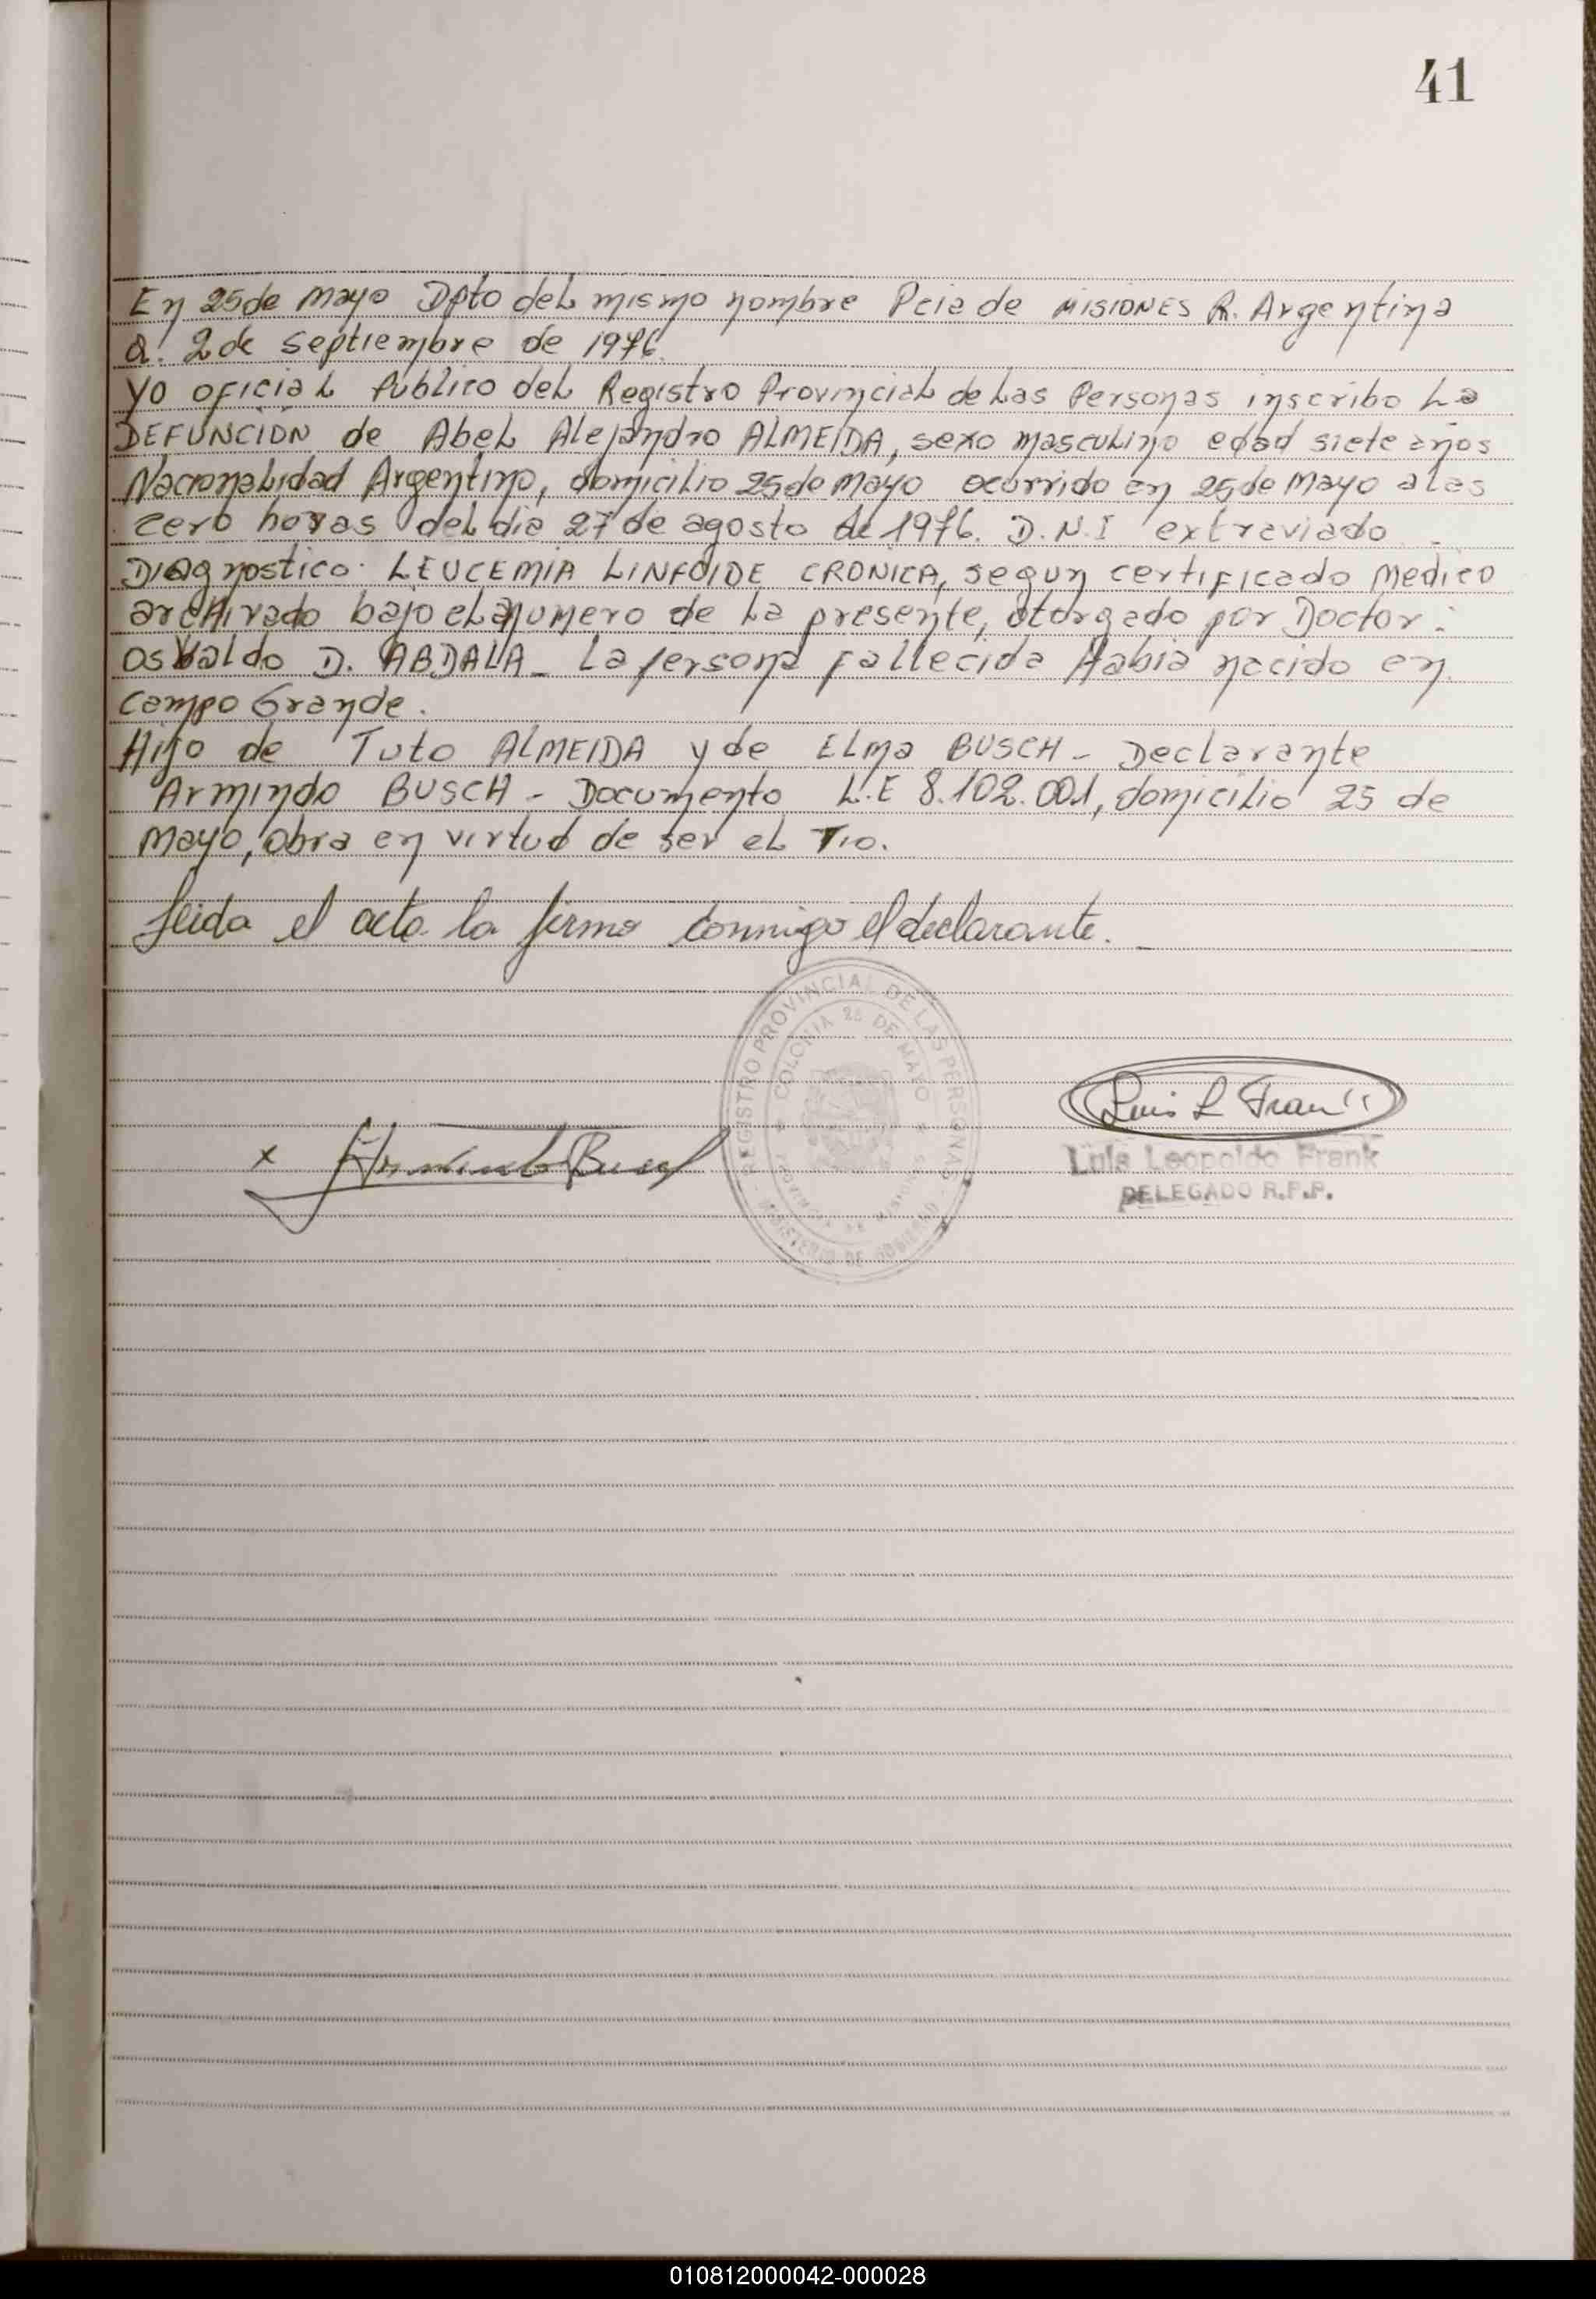 41
En 25 de Mayo Dpto del mismo nombre Pcia de MISIONES R. Argentina
a: 2 de septiembre de 1976.
Yo oficial Público del Registro Provincial de Las Personas inscribo La
DEFUNCIÓN de Abel Alejandro ALMEIDA, sexo masculino edad siete años
Nacionalidad Argentino, domicilio 25 de Mayo ocurrido en 25 de Mayo a las
cero horas del dia 27 de agosto de 1976. D.N.I extraviado -
Diagnostico: LEUCEMIA LINFOIDE CRONICA, segun certificado Medico
arcHivado bajo el número de La presente, otorgado por Doctor:
Osvaldo D. ABDALA - La persona fallecida Habia nacido en
Campo Grande.
Hijo de Tuto ALMEIDA y de ELma BUSCH - Declarante
Armindo BUSCH - Documento L.E 8.102.001, domicilio 25 de
Mayo, obra en virtud de ser el Tio.
Leida el acta la firma conmigo el declarante. -
REGISTRO PROVINCIAL DE LAS PERSONAS - MINISTERIO DE GOBIERNO -
COLONIA 25 DE MAYO * PROVINCIA DE MISIONES *
Luis L Frank
x Armindo Busch
Luis Leopoldo Frank
DELEGADO R.P.P.
010812000042-000028